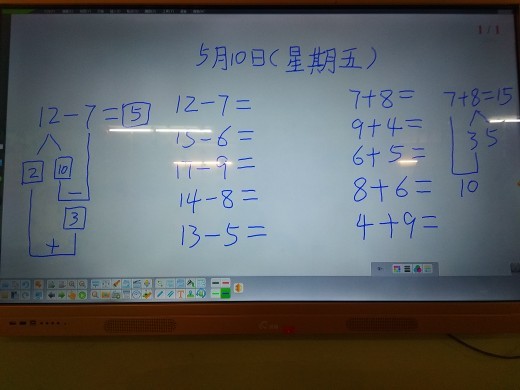 1/1
5月10日(星期五)
12-7=5
2 10
-
3
+
12-7=
15-6=
11-9=
14-8=
13-5=
7+8=
9+4=
6+5=
8+6=
4+9=
7+8=15
3 5
10